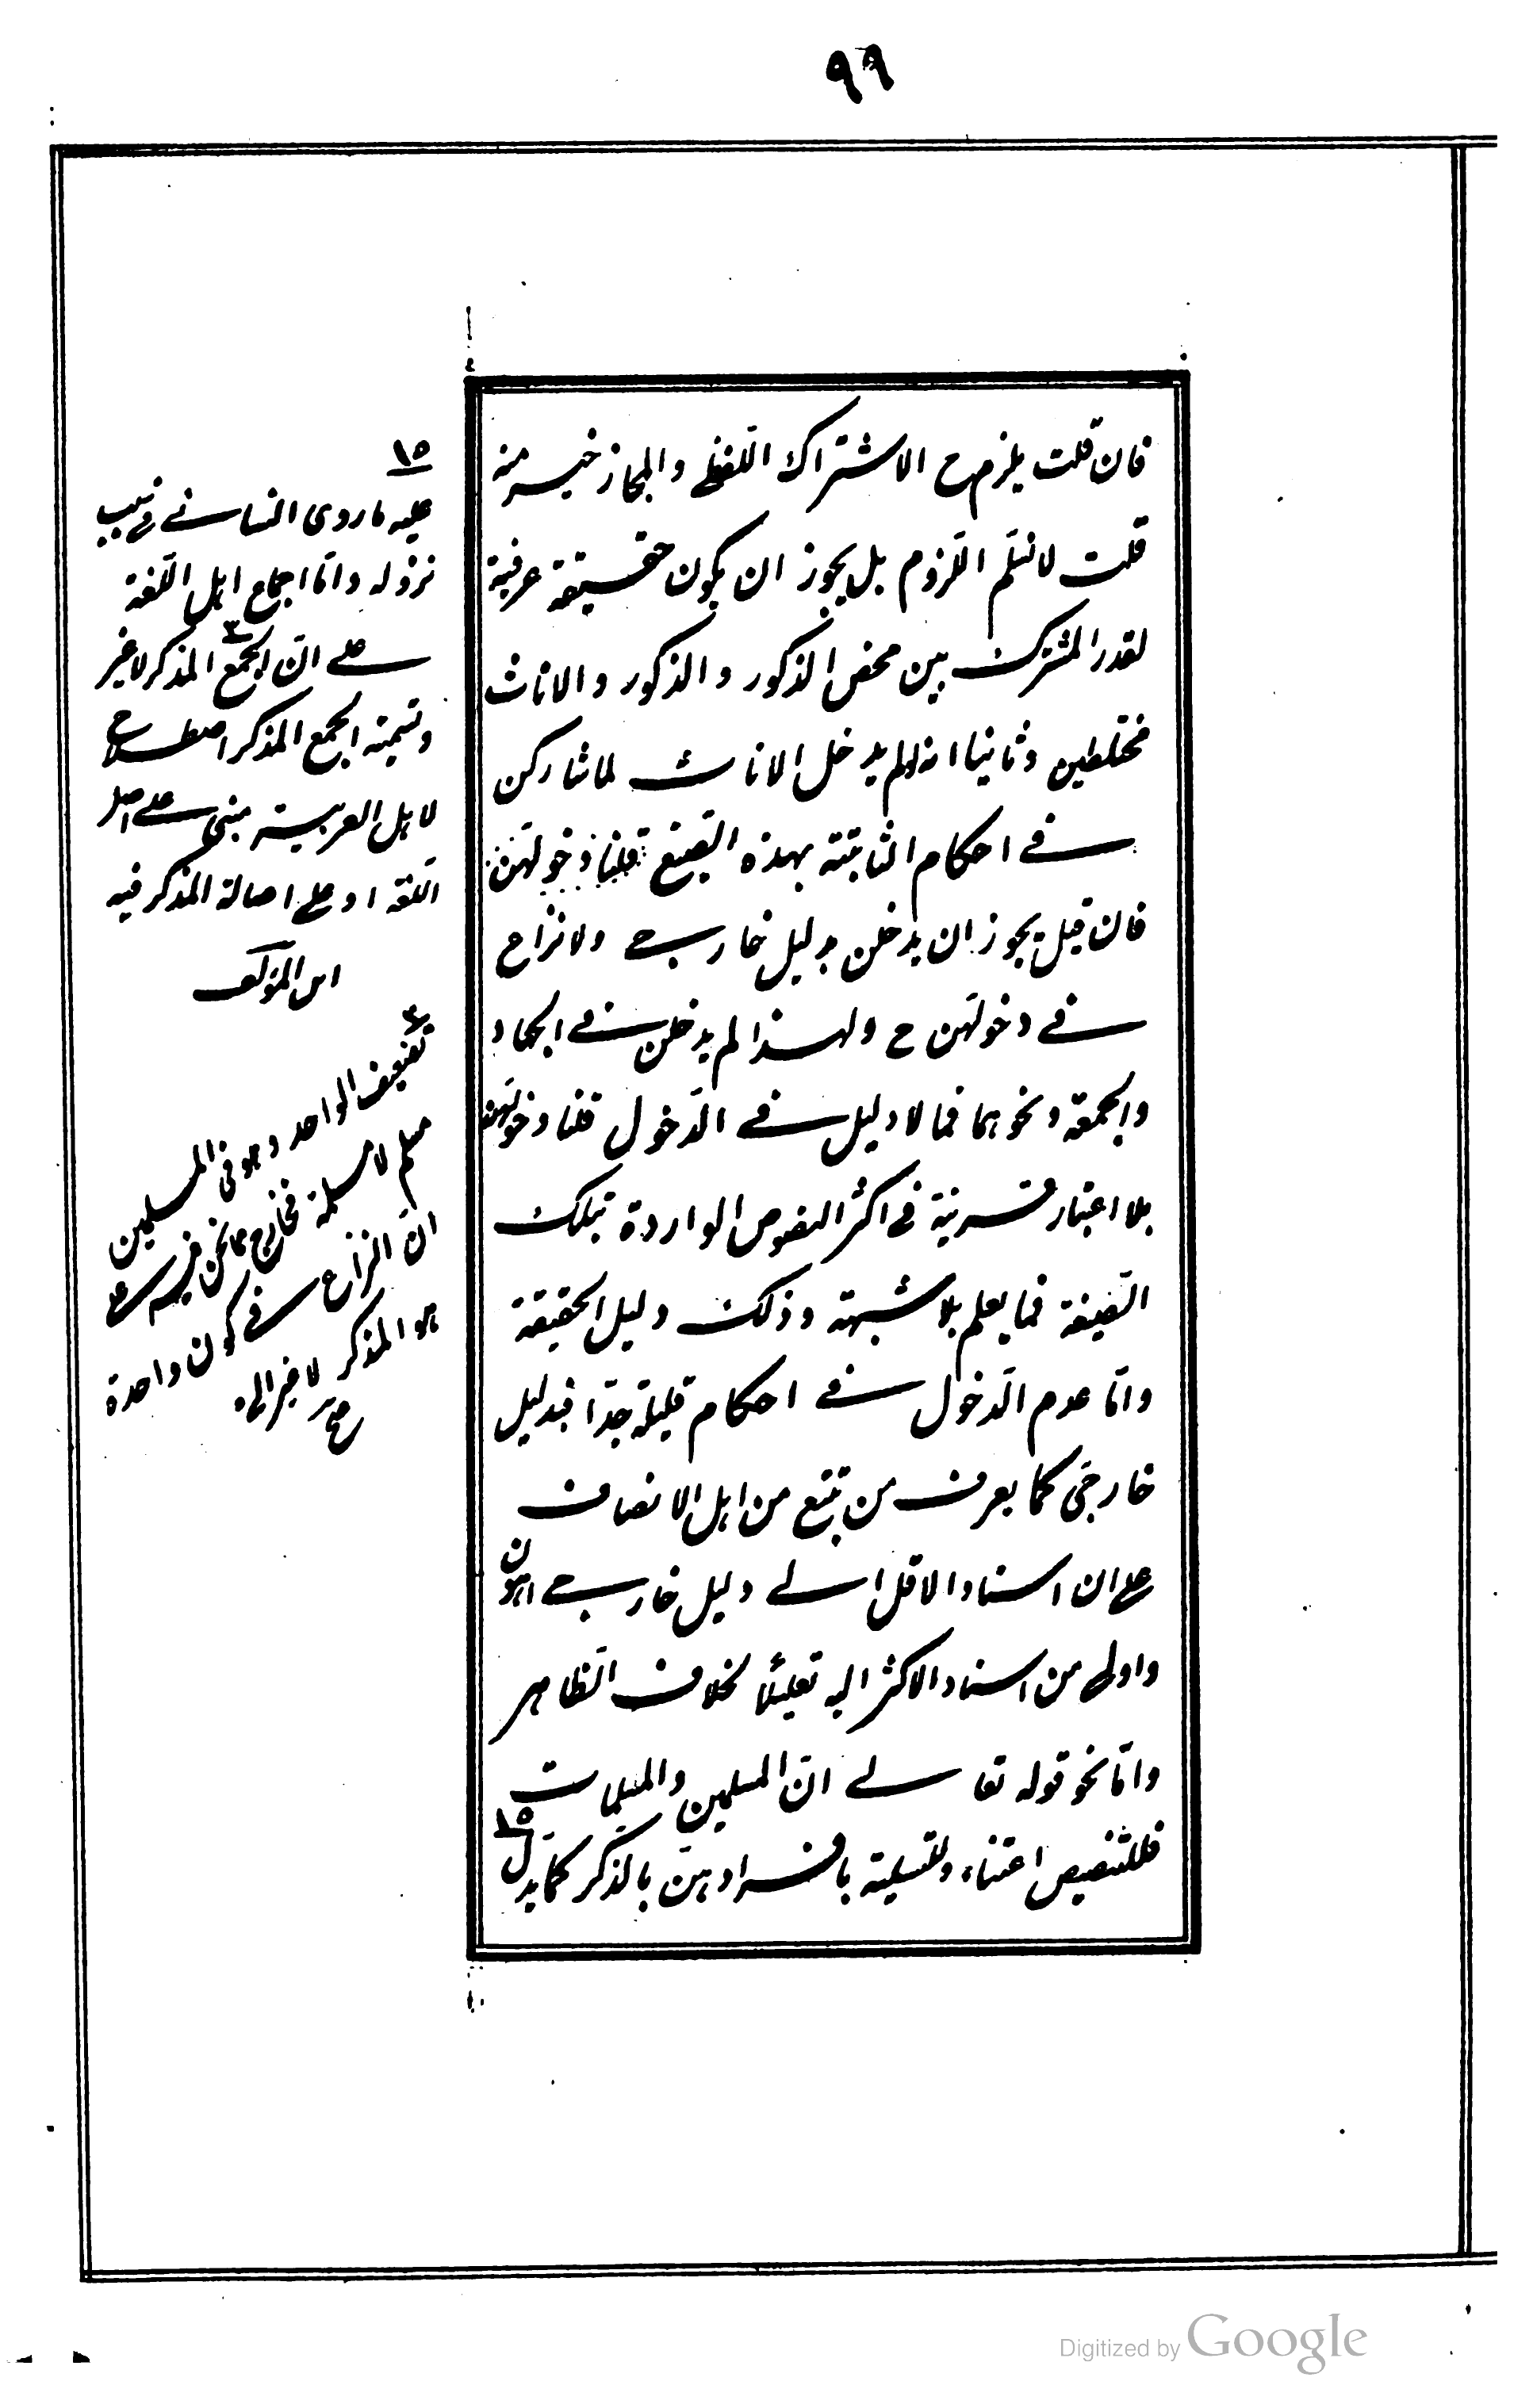 ٩٩
فان قلت يلزم ح الاشتراك اللفظى والمجاز خير منه
قلت لا نسلم اللزوم بل يجوز ان يكون حقيقة عرفية
لقدر المشترك بين محض الذكور والذكور والاناث
مختلطين وثانيا انه لو لم يدخل الاناث لما شاركن
فى احكام الثابتة بهذه الصيغ قلنا دخولهن
فان قيل يجوز ان يدخلن بدليل خارجى ولا نزاع
فى دخولهن ح ولهذا لم يدخلن فى الجهاد
والجمعة ونحوهما فما لا دليل فى الدخول قلنا دخولهن
بلا اعتبار قرينة فى اكثر النصوص الواردة بتلك
الصيغة فما يعلم بلا شبهة وذلك دليل الحقيقة
واما عدم الدخول فى احكام قليلة جدا فبدليل
خارجى كما يعرف من تتبع من اهل الانصاف
على ان اسناد الاقل الى دليل خارجى اهون
واولى من اسناد الاكثر اليه تقليلاً لخلاف الظاهر
واما نحو قوله تعالى ان المسلمين والمسلمات
فللتنصيص اعتناء وللتسلية بافرادهن بالذكر كما يدل ١٥
١٥
عليه ما روى النسائى فى سبب
نزوله واما اجماع اهل اللغة
على ان الجمع ٣ المذكر لا غير
وتسمية الجمع المذكر اصطلاح
لاهل العربية مبنى على اصل
اللغة او على اصالة المذكر فيه
اس المؤلف
٣
تضعيف الواحد وهو فى المسلمين
مسلم لا مسلمة فخارج عما نحن فيه
ان النزاع فى كون واحدة
هو المذكر لا غير
Digitized by Google